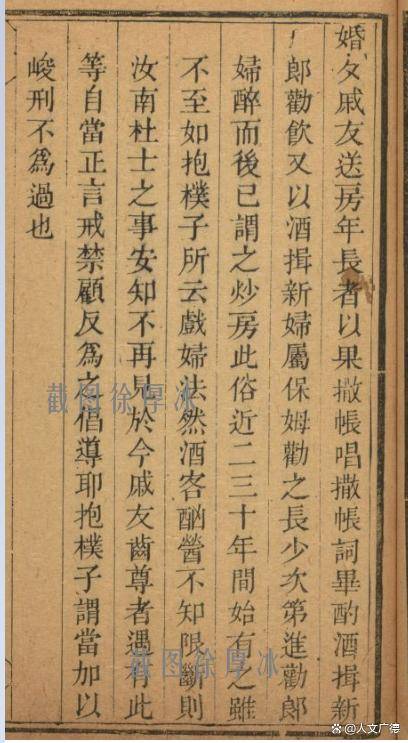 婚夕戚友送房年長者以果撒帳唱撒帳詞畢酌酒揖新
郎勸飲又以酒揖新婦屬保姆勸之長少次第進勸郎
婦醉而後已謂之炒房此俗近二三十年間始有之雖
不至如抱樸子所云戲婦法然酒客酗醟不知限斷則
汝南杜士之事安知不再見於今戚友齒尊者遇有此
等自當正言戒禁顧反爲之倡導耶抱樸子謂當加以
峻刑不爲過也
截图徐厚冰
截图徐厚冰
@人文广德